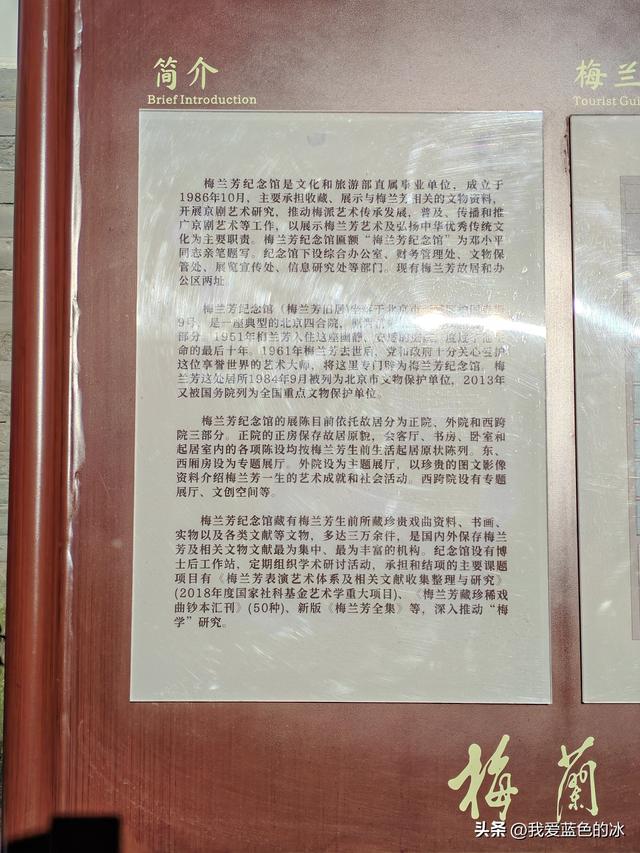 简介
Brief Introduction
梅兰
Tourist Gui
梅兰芳纪念馆是文化和旅游部直属事业单位，成立于
1986年10月，主要承担收藏、展示与梅兰芳相关的文物资料，
开展京剧艺术研究，推动梅派艺术传承发展，普及、传播和推
广京剧艺术等工作，以展示梅兰芳艺术及弘扬中华优秀传统文
化为主要职责。梅兰芳纪念馆匾额“梅兰芳纪念馆”为邓小平
同志亲笔题写。纪念馆下设综合办公室、财务管理处、文物保
管处、展览宣传处、信息研究处等部门。现有梅兰芳故居和办
公区两址
梅兰芳纪念馆（梅兰芳旧居）坐落于北京市
9号，是一座典型的北京四合院，
部分。1951年梅兰芳入住这座幽静、
生命的最后十年。1961年梅兰芳去世后，党和政府十分关心爱护
这位享誉世界的艺术大师，将这里专门辟为梅兰芳纪念馆。梅兰
芳这处居所1984年9月被列为北京市文物保护单位，2013年
又被国务院列为全国重点文物保护单位。
梅兰芳纪念馆的展陈目前依托故居分为正院、外院和西跨
院三部分。正院的正房保存故居原貌，会客厅、书房、卧室和
起居室内的各项陈设均按梅兰芳生前生活起居原状陈列。东、
西厢房设为专题展厅。外院设为主题展厅，以珍贵的图文影像
资料介绍梅兰芳一生的艺术成就和社会活动。西跨院设有专题
展厅、文创空间等。
梅兰芳纪念馆藏有梅兰芳生前所藏珍贵戏曲资料、书画、
实物以及各类文献等文物，多达三万余件，是国内外保存梅兰
芳及相关文物文献最为集中、最为丰富的机构。纪念馆设有博
士后工作站，定期组织学术研讨活动，承担和结项的主要课题
项目有《梅兰芳表演艺术体系及相关文献收集整理与研究》
(2018年度国家社科基金艺术学重大项目)、《梅兰芳藏珍稀戏
曲钞本汇刊》(50种)、新版《梅兰芳全集》等，深入推动“梅
学”研究。
梅蘭
头条 @我爱蓝色的冰